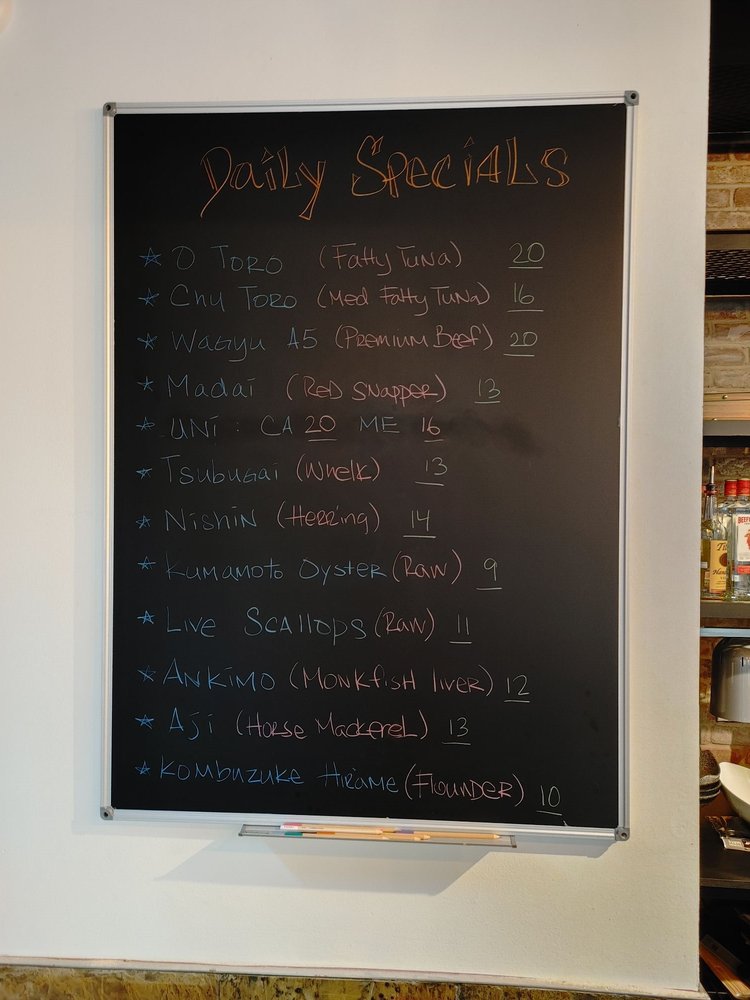 Daily Specials
☆ O Toro (Fatty Tuna) 20
☆ Chu Toro (Med Fatty Tuna) 16
☆ Wagyu A5 (Premium Beef) 20
☆ Madai (Red Snapper) 13
☆ Uni: CA 20 ME 16
☆ Tsubugai (Whelk) 13
☆ Nishin (Herring) 14
☆ Kumamoto Oyster (Raw) 9
☆ Live Scallops (Raw) 11
☆ Ankimo (Monkfish liver) 12
☆ Aji (Horse Mackerel) 13
☆ Kombuzuke Hirame (Flounder) 10